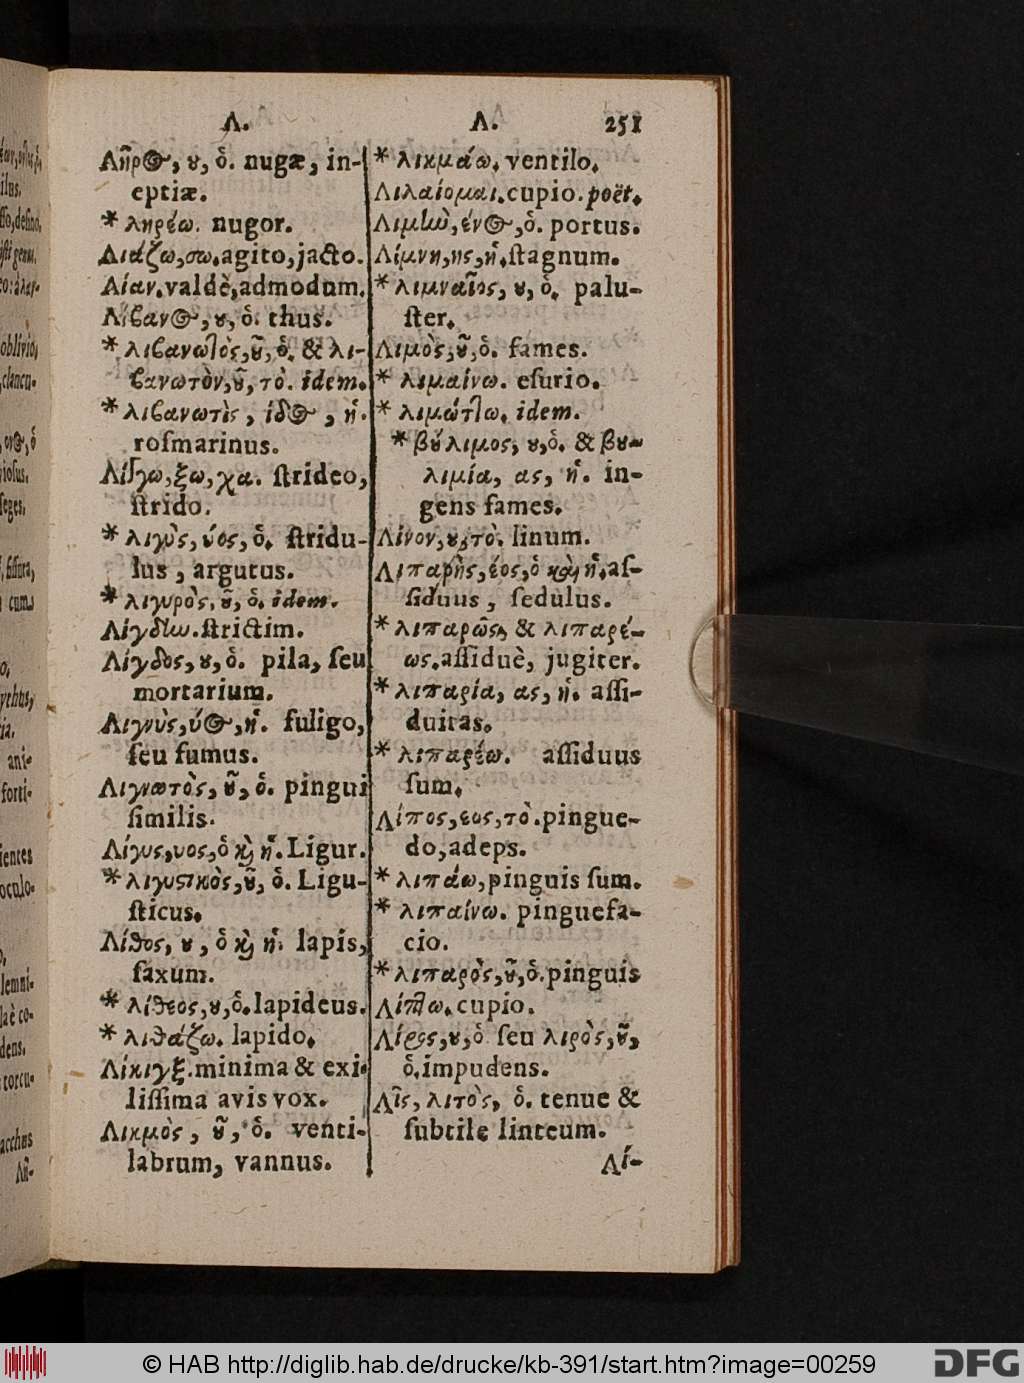 Λ.
Λῆρος, ου, ὁ. nugæ, in-
eptiæ.
* ληρέω. nugor.
Λιάζω, σω. agito, jacto.
Λίαν. valdè, admodum.
Λίβανος, ου, ὁ. thus.
* λιβανωτὸς, οῦ, ὁ. & λι-
βανωτὸν, οῦ, τὸ. idem.
* λιβανωτὶς, ίδος, ἡ.
roſmarinus.
Λίγγω, ξω, χα. ſtrideo,
ſtrido.
* λιγὺς, ύος, ὁ. ſtridu-
lus, argutus.
* λιγυρὸς, οῦ, ὁ. idem.
Λίγδην. ſtrictim.
Λίγδος, ου, ὁ. pila, ſeu
mortarium.
Λιγνὺς, ύος, ἡ. fuligo,
ſeu fumus.
Λιγνωτὸς, οῦ, ὁ. pingui
ſimilis.
Λίγυς, υος, ὁ καὶ ἡ. Ligur.
* λιγυστικὸς, οῦ, ὁ. Ligu-
ſticus.
Λίθος, ου, ὁ καὶ ἡ. lapis,
ſaxum.
* λίθεος, ου, ὁ. lapideus.
* λιθάζω. lapido.
Λίκιγξ. minima & exi-
liſſima avis vox.
Λικμὸς, οῦ, ὁ. venti-
labrum, vannus.
Λ. 251
* λικμάω. ventilo.
Λιλαίομαι. cupio. poët.
Λιμὼ, ένος, ὁ. portus.
Λίμνη, ης, ἡ. ſtagnum.
* λιμναῖος, ου, ὁ. palu-
ſter.
Λιμὸς, οῦ, ὁ. fames.
* λιμαίνω. eſurio.
* λιμώττω. idem.
* βούλιμος, ου, ὁ. & βου-
λιμία, ας, ἡ. in-
gens fames.
Λίνον, ου, τὸ. linum.
Λιπαρὴς, έος, ὁ καὶ ἡ. aſ-
ſiduus, ſedulus.
* λιπαρῶς, & λιπαρέ-
ως. aſſiduè, jugiter.
* λιπαρία, ας, ἡ. aſſi-
duitas.
* λιπαρέω. aſſiduus
ſum.
Λίπος, εος, τὸ. pingue-
do, adeps.
* λιπάω, pinguis ſum.
* λιπαίνω. pinguefa-
cio.
* λιπαρὸς, οῦ, ὁ. pinguis
Λίπτω. cupio.
Λίρος, ου, ὁ ſeu λιρὸς, οῦ,
ὁ. impudens.
Λῒς, λιτὸς, ὁ. tenue &
ſubtile linteum.
Λί-
© HAB http://diglib.hab.de/drucke/kb-391/start.htm?image=00259
DFG